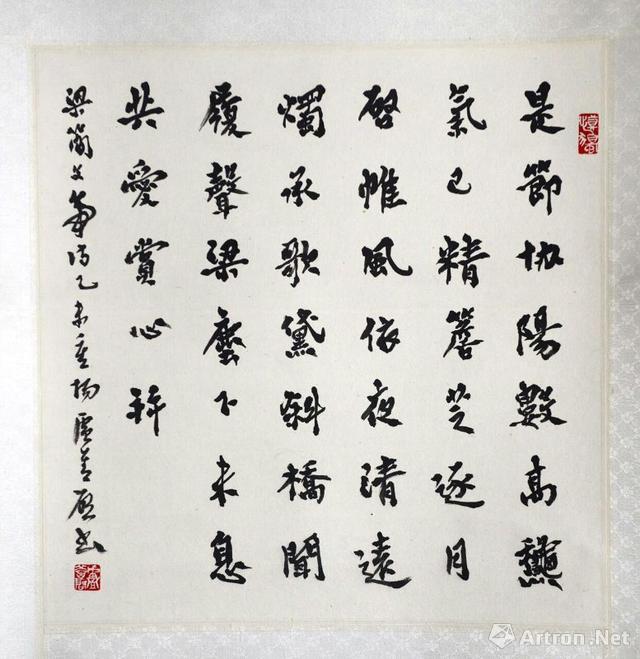 是節協陽數高龝
氣已精簷芝逐月
啓帷風依夜清遠
燭承歌黛斜橋聞
履聲梁塵下未息
共愛賞心并
梁簡文帝詩乙未重陽盧善啟書
Artron.Net